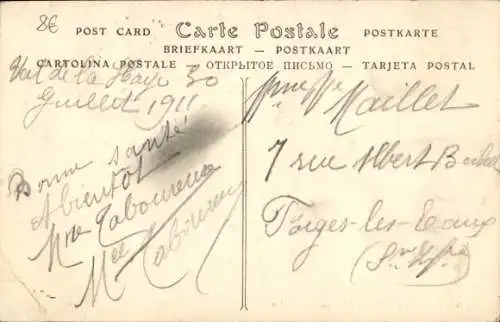 8€
POST CARD Carte Postale POSTKARTE
BRIEFKAART — POSTKAART
CARTOLINA POSTALE — ОТКРЫТОЕ ПИСЬМО — TARJETA POSTAL
Val de la Haye 30
Juillet 1911
Bonne santé
A bientot
Mme Taboureux
Mel Taboureux
Maillet
7 rue Albert
Forges-les-Eaux
(Sne Infre)